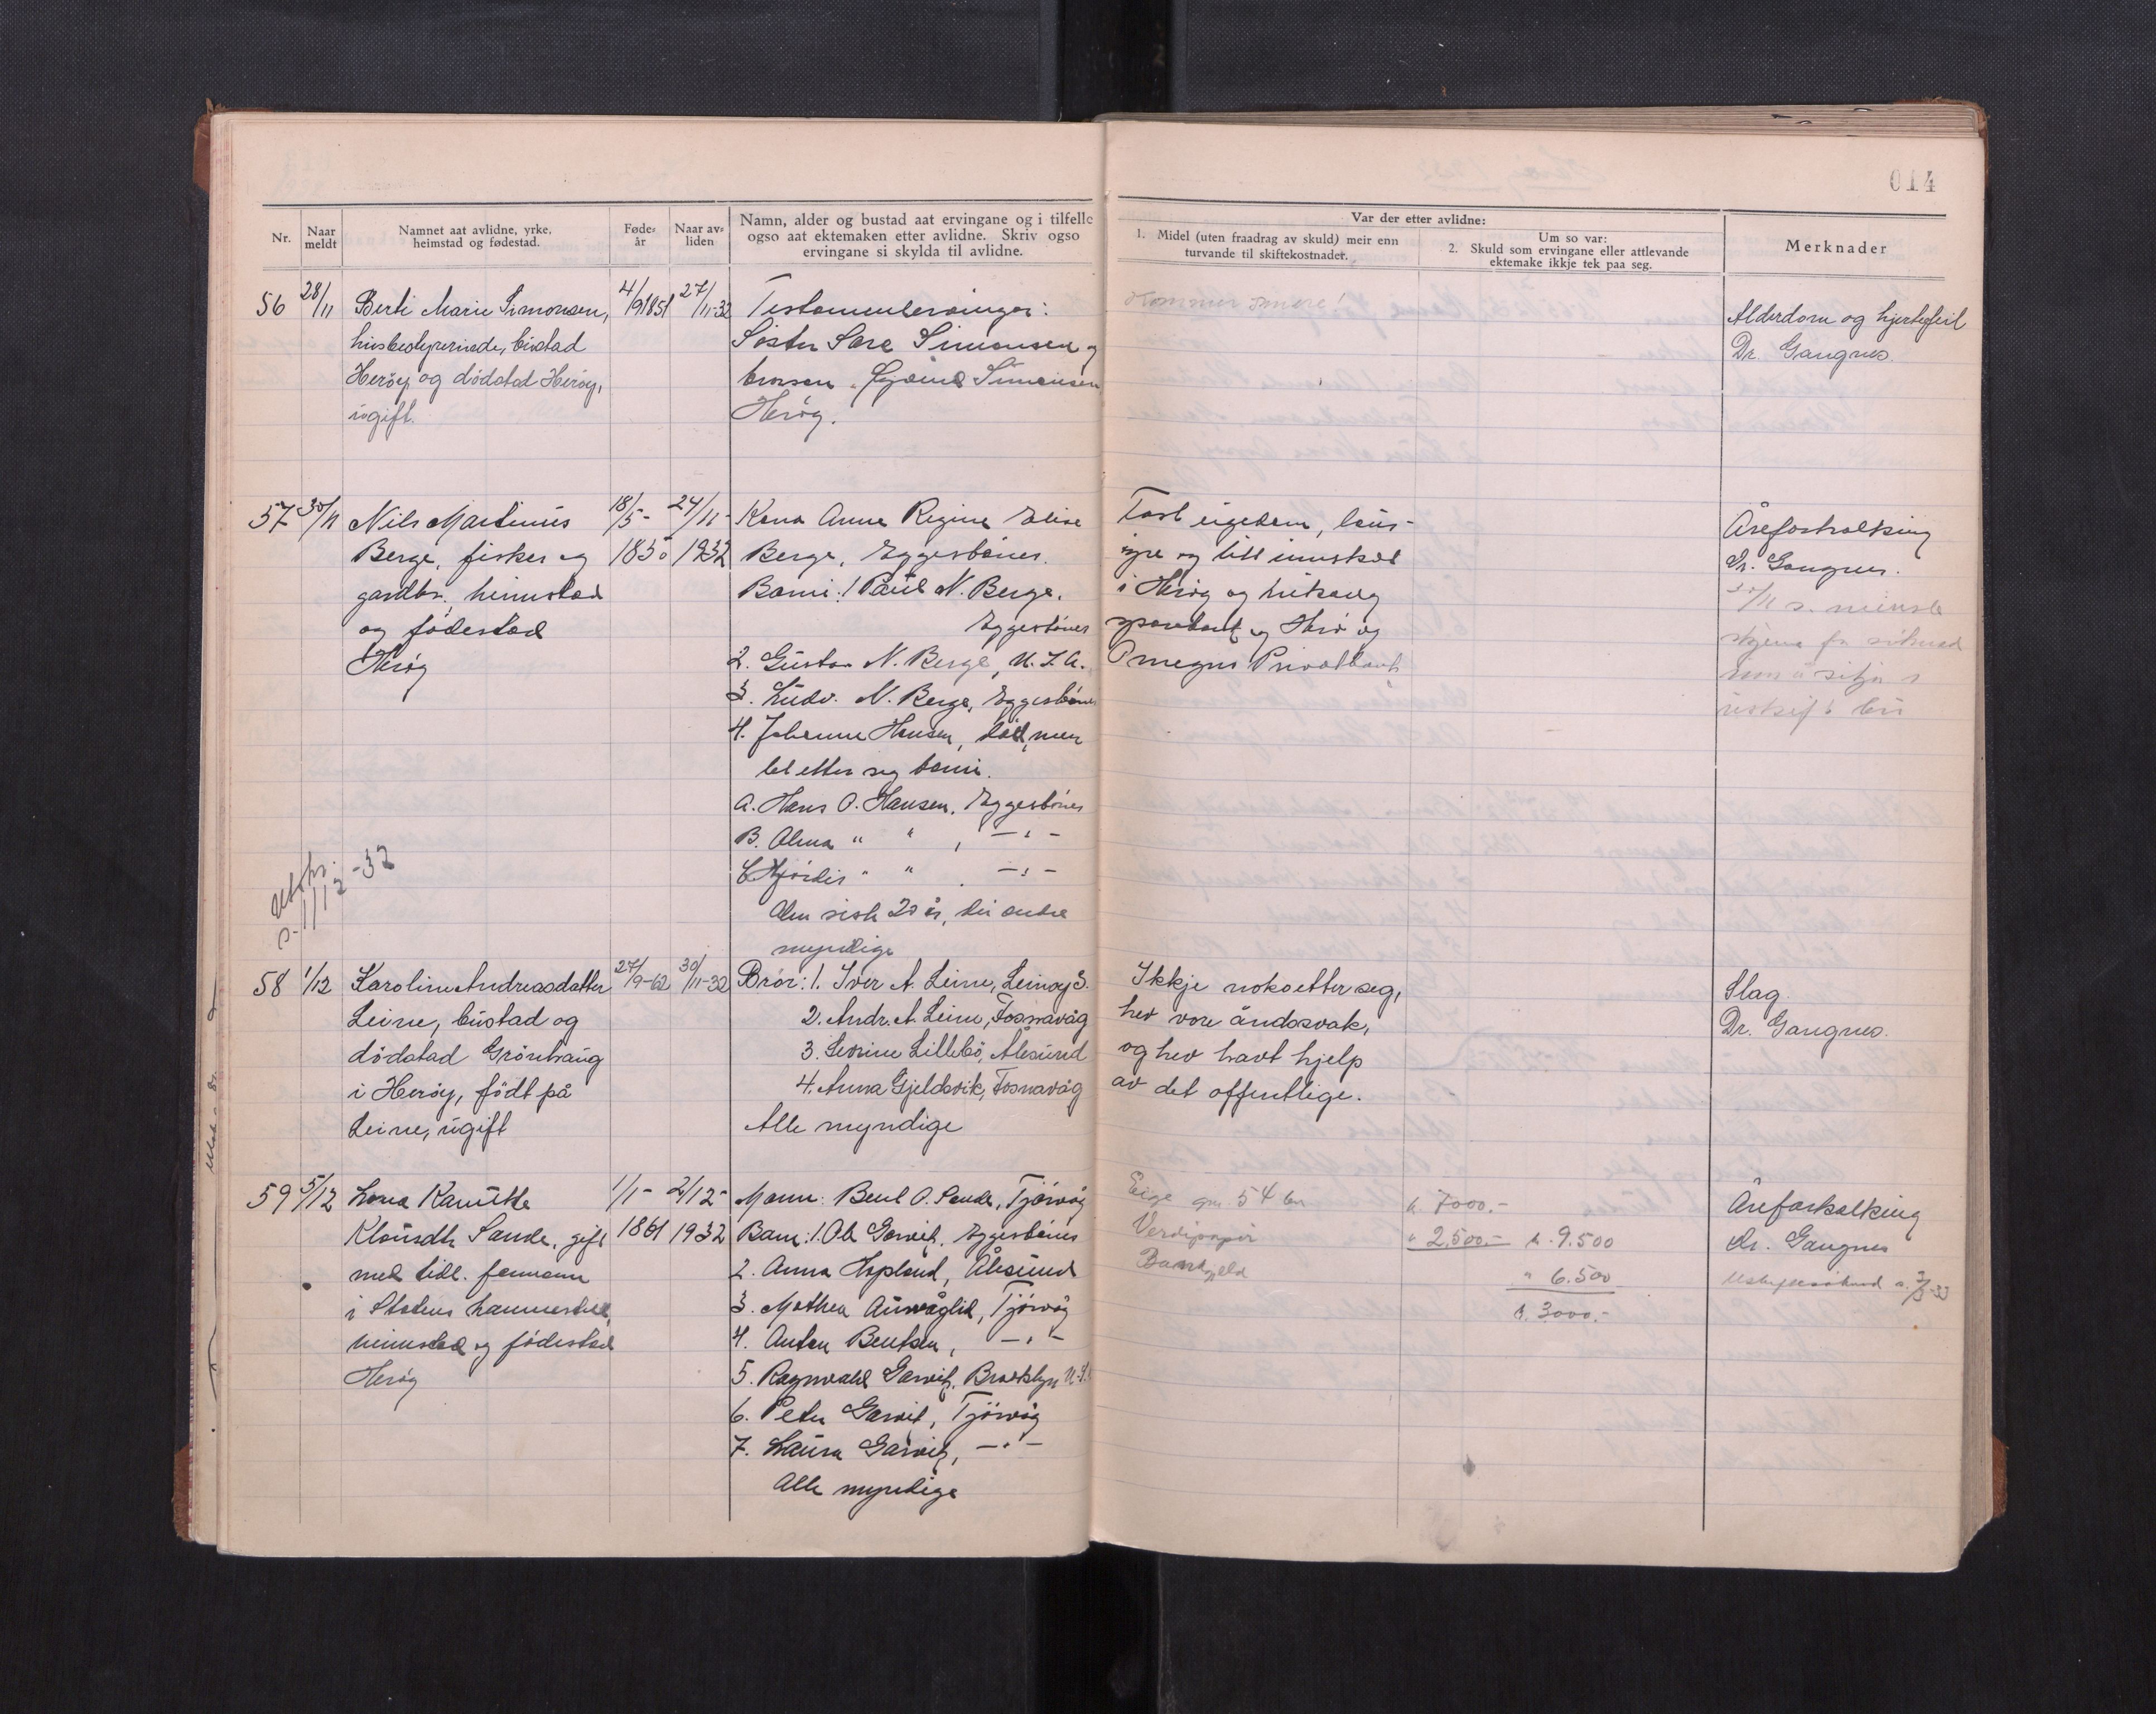 014
Nr.
Naar
meldt
Namnet aat avlidne, yrke,
heimstad og fødestad.
Føde-
år
Naar av-
liden
Namn, alder og bustad aat ervingane og i tilfelle
ogso aat ektemaken etter avlidne. Skriv ogso
ervingane si skylda til avlidne.
Var der etter avlidne:
1. Midel (uten fraadrag av skuld) meir enn
turvande til skiftekostnader.
Um so var:
2. Skuld som ervingane eller attlevande
ektemake ikkje tek paa seg.
Merknader
56 28/11 Berti Marie Simonsen, 4/9 1851 27/11-32
husbestyrerinde, bustad
Herøy og dødstad Herøy,
ugift.
Testamentarvinger:
Søster Sara Simonsen og
brorson Simonsen
Herøy.
Kommer senere!
Alderdom og hjertefeil
Dr. Gangnes.
57 30/11 Nils Martinus 18/5- 24/11-
Berge, fisker og 1850 1932
gardbr., heimstad
og fødestad
Herøy
Kona Anna Regine Elise
Berge, Eggesbønes.
Barni: 1 Paul N. Berge,
Eggesbønes
2. Gustav N. Berge, U.S.A.
3. Ludv. N. Berge, Eggesbønes
4. Johanne Hansen, død, men
let etter seg barni.
A. Hans O. Hansen, Eggesbønes
B. Alma " " , -"-
C. Hjørdis " " . -"-
Den siste 20 år, dei andre
myndige
Fast eigedom, laus-
øyre og litt innskot
i Herøy og
sparebank og Herø og
Omegns Privatbank
Åreforkalking
Dr. Gangnes.
30/11 s.
skjema for søknad
um å sitja i
uskift bu
s. 1/12-32
58 1/12 Karoline Andreasdatter 27/9-62 30/11-32
Leine, bustad og
dødstad Grønhaug
i Herøy, født på
Leine, ugift
Brør: 1. Iver A. Leine, Leinøy S.
2. Andr. A. Leine, Fosnavåg
3. Severine Lillebø, Ålesund
4. Anna Gjeldsvik, Fosnavåg
Alle myndige
Ikkje noko etter seg,
hev vore åndssvak,
og hev havt hjelp
av det offentlige.
Slag.
Dr. Gangnes.
59 5/12 Lovise Kanutte 1/1- 2/12-
Sande, gift 1861 1932
med tidl. formann
i Statens
heimstad og fødestad
Herøy
Mann: Bent O. Sande, Tjørvåg
Barn: 1. Ole Garvik, Eggesbønes
2. Anna Hopland, Ålesund
3. Mathea Aurvåglid, Tjørvåg
4. Anton Bentsen, -"-
5. Ragnvald Garvik, Brooklyn U.S.A
6. Peter Garvik, Tjørvåg
7. Laura Garvik, -"-
Alle myndige
Eige gnr 54 bnr kr. 7000.-
Verdipapir " 2.500.- kr. 9.500
Bankgjeld " 6.500
kr. 3000.-
Åreforkalking
Dr. Gangnes